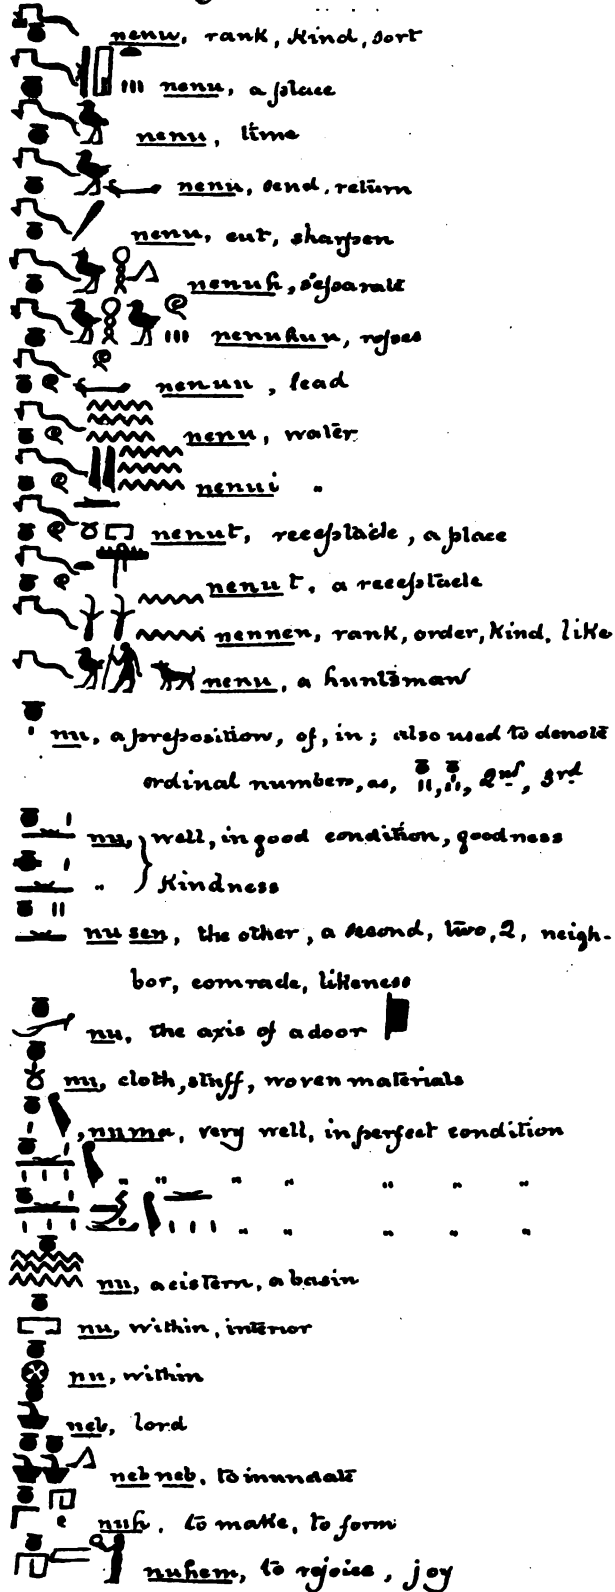 nenu, rank, kind, sort
nenu, a place
nenu, time
nenu, send, return
nenu, cut, sharpen
nenuh, separate
nenuhuu, ropes
nenuu, lead
nenu, water
nenui "
nenut, receptacle, a place
nenut, a receptacle
nennen, rank, order, kind, like
nenu, a huntsman
nu, a preposition, of, in; also used to denote
ordinal numbers, as, 2nd, 3rd
nu, well, in good condition, goodness
" kindness
nu sen, the other, a second, two, 2, neigh-
bor, comrade, likeness
nu, the axis of a door
nu, cloth, stuff, woven materials
, numa, very well, in perfect condition
" " " " " " "
" " " " "
nu, a cistern, a basin
nu, within, interior
nu, within
neb, lord
neb neb, to inundate
nuh, to make, to form
nuhem, to rejoice, joy